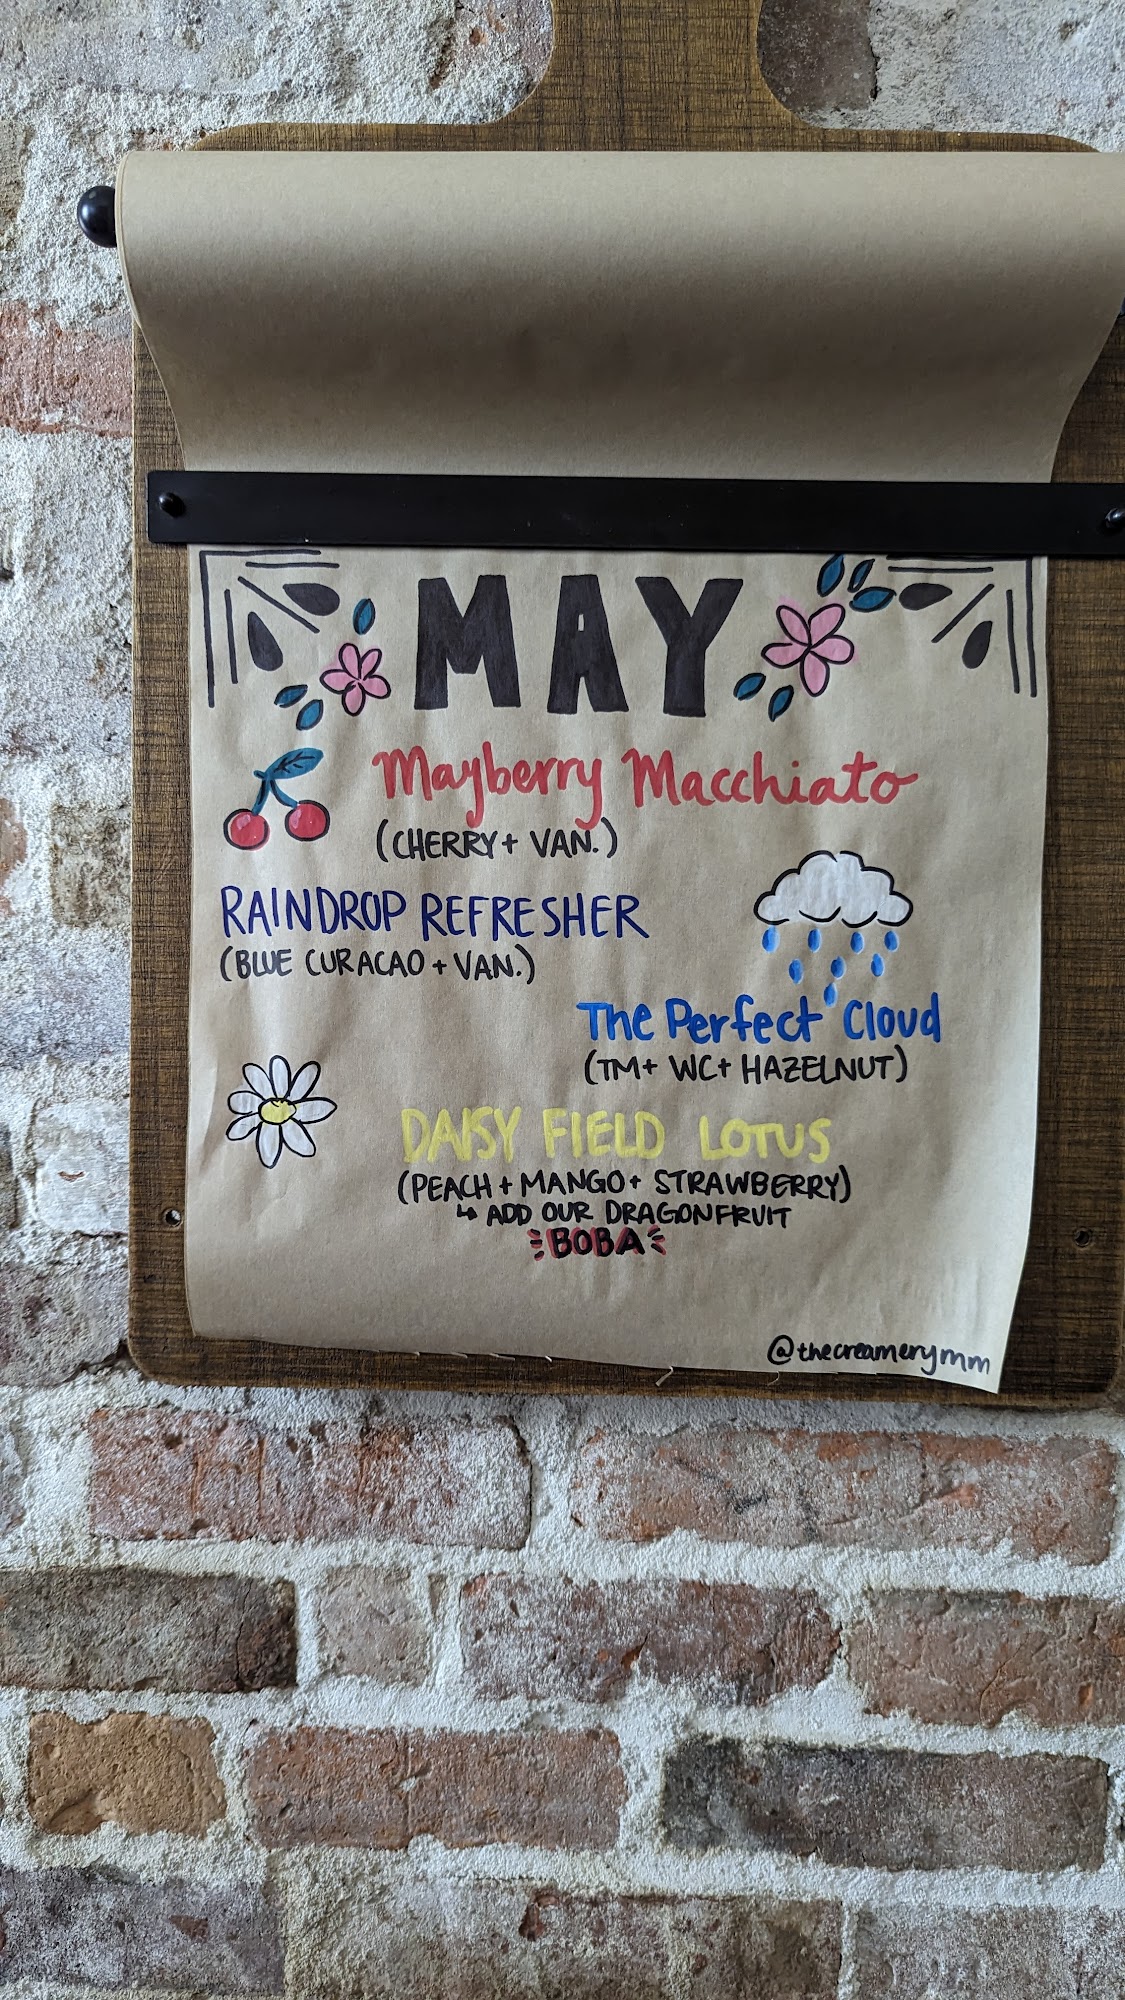 MAY
Mayberry Macchiato
(CHERRY + VAN.)
RAINDROP REFRESHER
(BLUE CURACAO + VAN.)
The Perfect Cloud
(TM+ WC+ HAZELNUT)
DAISY FIELD LOTUS
(PEACH + MANGO + STRAWBERRY)
↳ ADD OUR DRAGONFRUIT
BOBA
@thecreamerymm